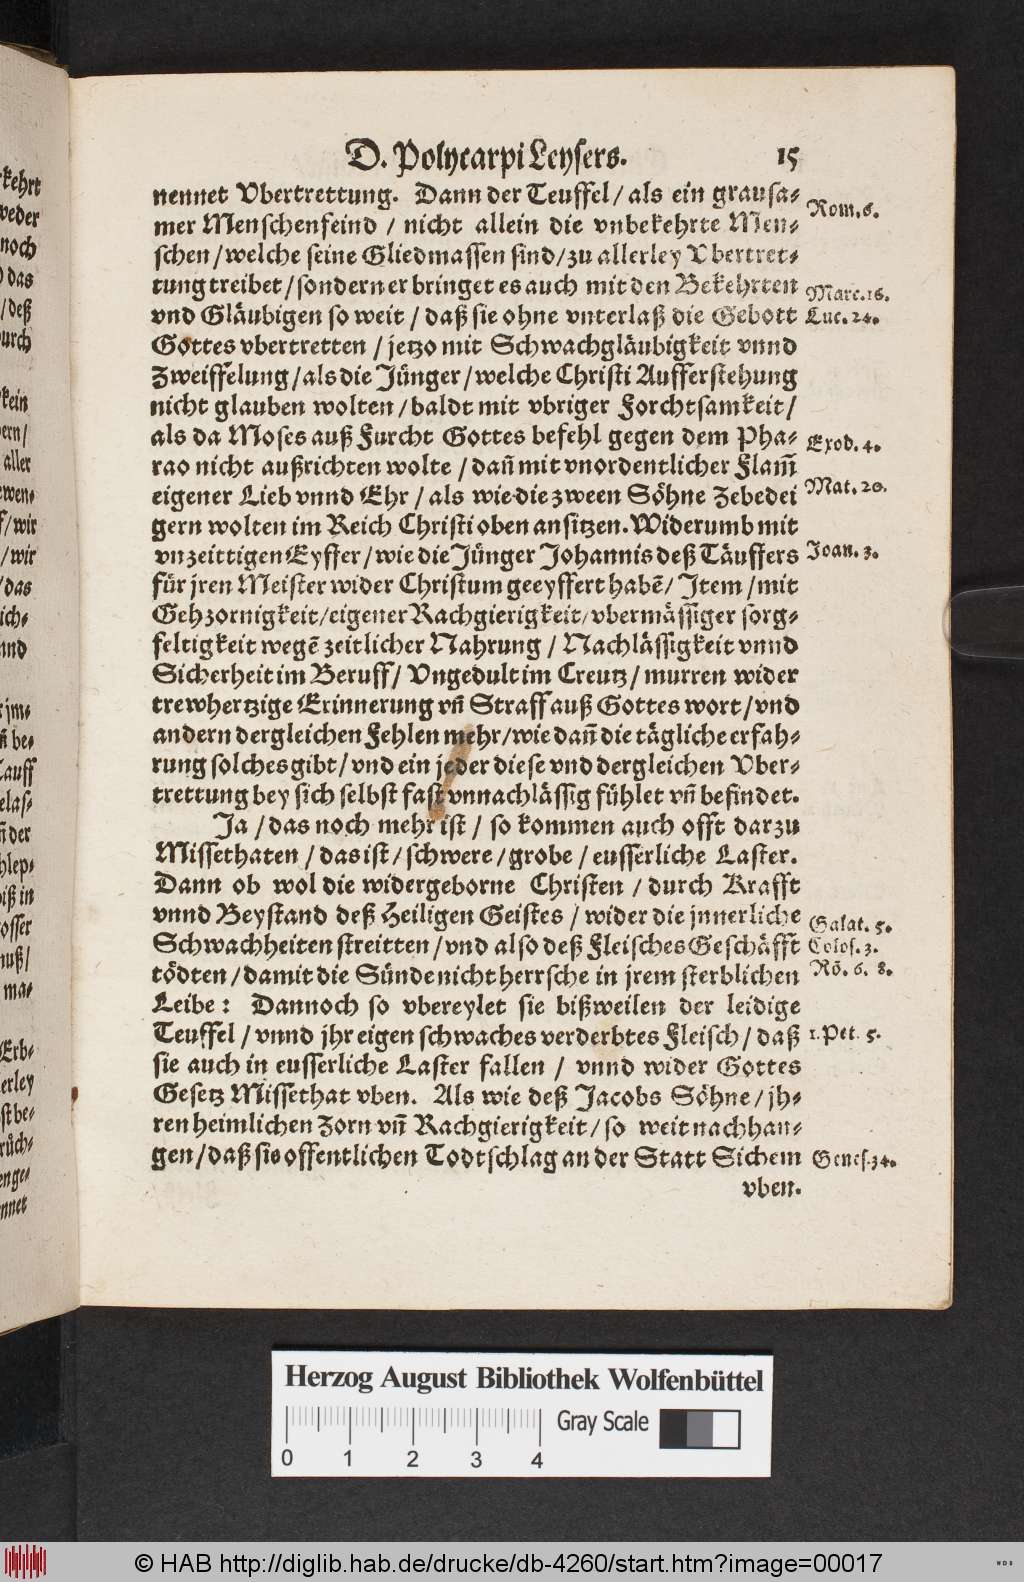 D. Polycarpi Leysers. 15
nennet Vbertrettung. Dann der Teuffel / als ein grausa-
mer Menschenfeind / nicht allein die vnbekehrte Men-
schen / welche seine Gliedmassen sind / zu allerley Vbertret-
tung treibet / sondern er bringet es auch mit den Bekehrten
vnd Gläubigen so weit / daß sie ohne vnterlaß die Gebott
Gottes vbertretten / jetzo mit Schwachgläubigkeit vnnd
Zweiffelung / als die Jünger / welche Christi Aufferstehung
nicht glauben wolten / baldt mit vbriger Forchtsamkeit /
als da Moses auß Furcht Gottes befehl gegen dem Pha-
rao nicht außrichten wolte / dañ mit vnordentlicher Flam̃
eigener Lieb vnnd Ehr / als wie die zween Söhne Zebedei
gern wolten im Reich Christi oben ansitzen. Widerumb mit
vnzeittigen Eyffer / wie die Jünger Johannis deß Täuffers
für jren Meister wider Christum geeyffert habẽ / Item / mit
Gehzornigkeit / eigener Rachgierigkeit / vbermässiger sorg-
feltigkeit wegẽ zeitlicher Nahrung / Nachlässigkeit vnnd
Sicherheit im Beruff / Vngedult im Creutz / murren wider
trewhertzige Erinnerung vñ Straff auß Gottes wort / vnd
andern dergleichen Fehlen mehr / wie dañ die tägliche erfah-
rung solches gibt / vnd ein jeder diese vnd dergleichen Vber-
trettung bey sich selbst fast vnnachlässig fühlet vñ befindet.
Ja / das noch mehr ist / so kommen auch offt darzu
Missethaten / das ist / schwere / grobe / eusserliche Laster.
Dann ob wol die widergeborne Christen / durch Krafft
vnnd Beystand deß Heiligen Geistes / wider die jnnerliche
Schwachheiten streitten / vnd also deß Fleisches Geschäfft
tödten / damit die Sünde nicht herrsche in jrem sterblichen
Leibe: Dannoch so vbereylet sie bißweilen der leidige
Teuffel / vnnd jhr eigen schwaches verderbtes Fleisch / daß
sie auch in eusserliche Laster fallen / vnnd wider Gottes
Gesetz Missethat vben. Als wie deß Jacobs Söhne / jh-
ren heimlichen Zorn vñ Rachgierigkeit / so weit nachhan-
gen / daß sie offentlichen Todtschlag an der Statt Sichem
vben.
Rom. 6.
Marc. 16.
Luc. 24.
Exod. 4.
Mat. 20.
Joan. 3.
Galat. 5.
Colos. 3.
Rõ. 6. 8.
1. Pet. 5.
Genes. 34.
kehrt
weder
noch
das
/ deß
durch
kein
ern /
aller
ewen-
/ wir
/ wir
/ das
ich-
nnd
jm-
ñ be-
Tauff
elas-
ñ der
hlep-
biß in
osser
muß /
ma-
Erb-
erley
st be-
rüch-
enge-
nnet
Herzog August Bibliothek Wolfenbüttel
Gray Scale
0 1 2 3 4
© HAB http://diglib.hab.de/drucke/db-4260/start.htm?image=00017